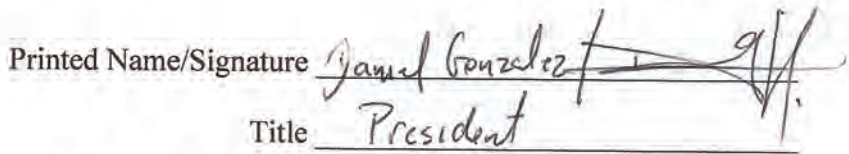 Printed Name/Signature Daniel Gonzalez /
Title President